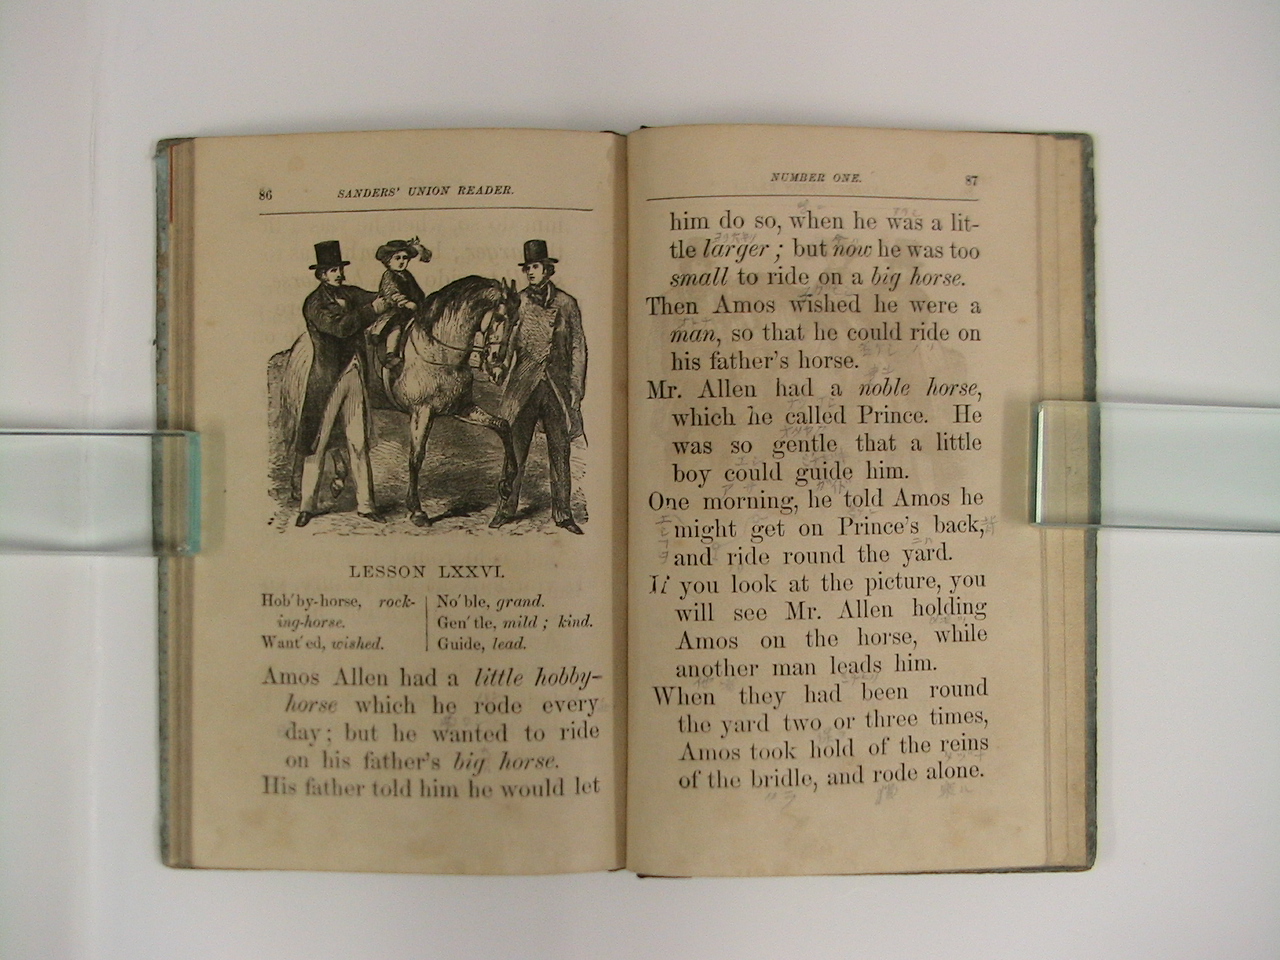 86 SANDERS' UNION READER.
LESSON LXXVI.
Hob'by-horse, rock-
ing-horse.
Want'ed, wished.
No'ble, grand.
Gen'tle, mild; kind.
Guide, lead.
Amos Allen had a little hobby-
horse which he rode every
day; but he wanted to ride
on his father's big horse.
His father told him he would let
NUMBER ONE. 87
him do so, when he was a lit-
tle larger; but now he was too
small to ride on a big horse.
Then Amos wished he were a
man, so that he could ride on
his father's horse.
Mr. Allen had a noble horse,
which he called Prince. He
was so gentle that a little
boy could guide him.
One morning, he told Amos he
might get on Prince's back,
and ride round the yard.
If you look at the picture, you
will see Mr. Allen holding
Amos on the horse, while
another man leads him.
When they had been round
the yard two or three times,
Amos took hold of the reins
of the bridle, and rode alone.